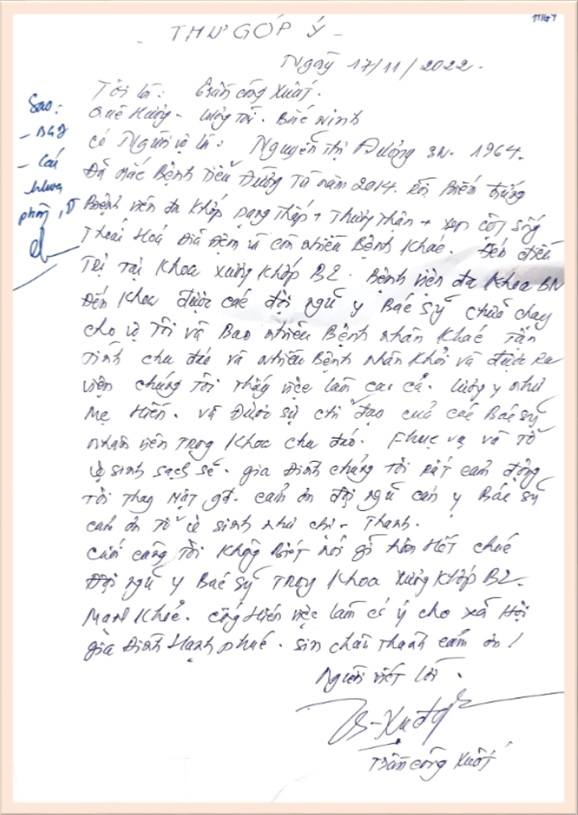 THƯ GÓP Ý
Ngày 17/11/2022.
Tôi là: Trần công Xuất.
Quê Hương - Lương Tài. Bắc Ninh
có Người vợ là: Nguyễn Thị Đượng SN. 1964.
Đã mắc Bệnh Tiểu Đường Từ năm 2014. Biến chứng
Bệnh viêm đa Khớp Dạng Thấp + Thượng Thận + xẹp cột sống
Thoái Hoá Đĩa đệm và còn nhiều Bệnh Khác. Đến điều
Trị tại Khoa xương Khớp B2. Bệnh viện đa Khoa BN
Đến Khoa được các đội ngũ y Bác Sỹ chữa chạy
cho vợ Tôi và Bao nhiêu Bệnh nhân Khác tận
tình chu đáo và nhiều Bệnh nhân Khỏi và được Ra
viện chúng Tôi thấy việc làm cao cả. Lương y như
Mẹ Hiền. và Được sự chỉ đạo của các Bác Sỹ
nhân viên Trong Khoa chu đáo. Phục vụ và tổ
vệ sinh sạch sẽ. gia Đình chúng Tôi Rất cảm động
Tôi Thay Mặt gđ. cảm ơn đội ngũ cán y Bác Sỹ
cảm ơn Tổ vệ sinh như chị - Thanh.
cuối cùng Tôi Không Biết nói gì hơn Hết chúc
Đội ngũ y Bác Sỹ Trong Khoa Xương Khớp B2.
Mạnh Khoẻ. cống Hiến việc làm có ý cho xã Hội
gia Đình Hạnh phúc. Sin chân Thành cảm ơn!
Người viết
Trần công Xuất
Sao:
- BGĐ
- Các
phòng